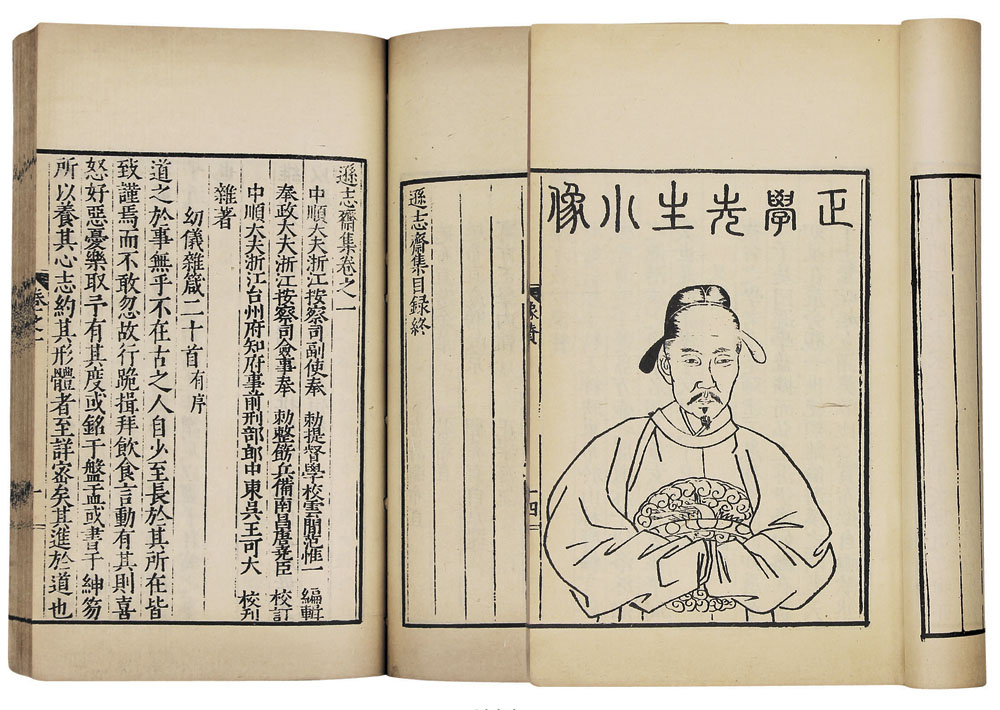 正學先生小像
像贊
十四
遜志齋集目録終
遜志齋集卷之一
中順大夫浙江按察司副使奉　勑提督學校雲間范惟一　編輯
奉政大夫浙江按察司僉事奉　勑整飭兵備南昌唐堯臣　校訂
中順大夫浙江台州府知府事前刑部郎中東吳王可大　校刊
雜著
幼儀雜箴二十首有序
道之於事無乎不在古之人自少至長於其所在皆
致謹焉而不敢忽故行跪揖拜飲食言動有其則喜
怒好惡憂樂取予有其度或銘于盤盂或書于紳笏
所以養其心志約其形體者至詳密矣其進於道也
卷之一
一